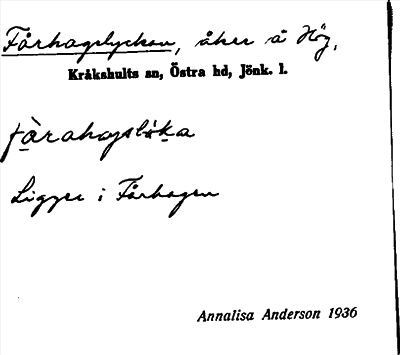 Fårhagslyckan, åker å Hög.
Kråkshults sn, Östra hd, Jönk. l.
fàrahagslöka
Ligger i Fårhagen
Annalisa Anderson 1936